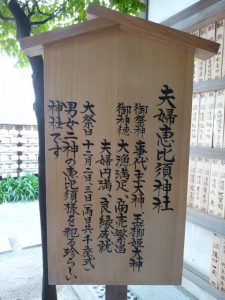 夫婦恵比須神社
御祭神 事代主大神、玉櫛姫大神
御神徳 大漁満足、商売繁盛
夫婦円満、良縁成就
大祭日 十一月二日、三日(両日共千座式)
男女二神の恵比須様を祀る珍らしい
神社です